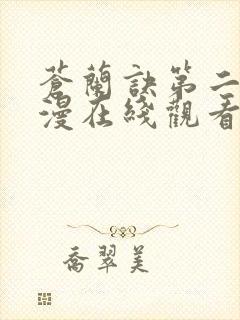 蒼蘭訣第二
漫在綫觀看
喬翠美